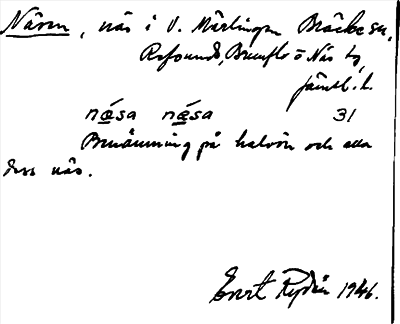 Näsen, näs i V. Märlingen Bräcke sn,
Refsunds, Brunflo o Näs tg,
Jämtl. l.
nǽsa nǽsa 31
Benämning på halvön och
dess näs.
Evert Rydén 1946.